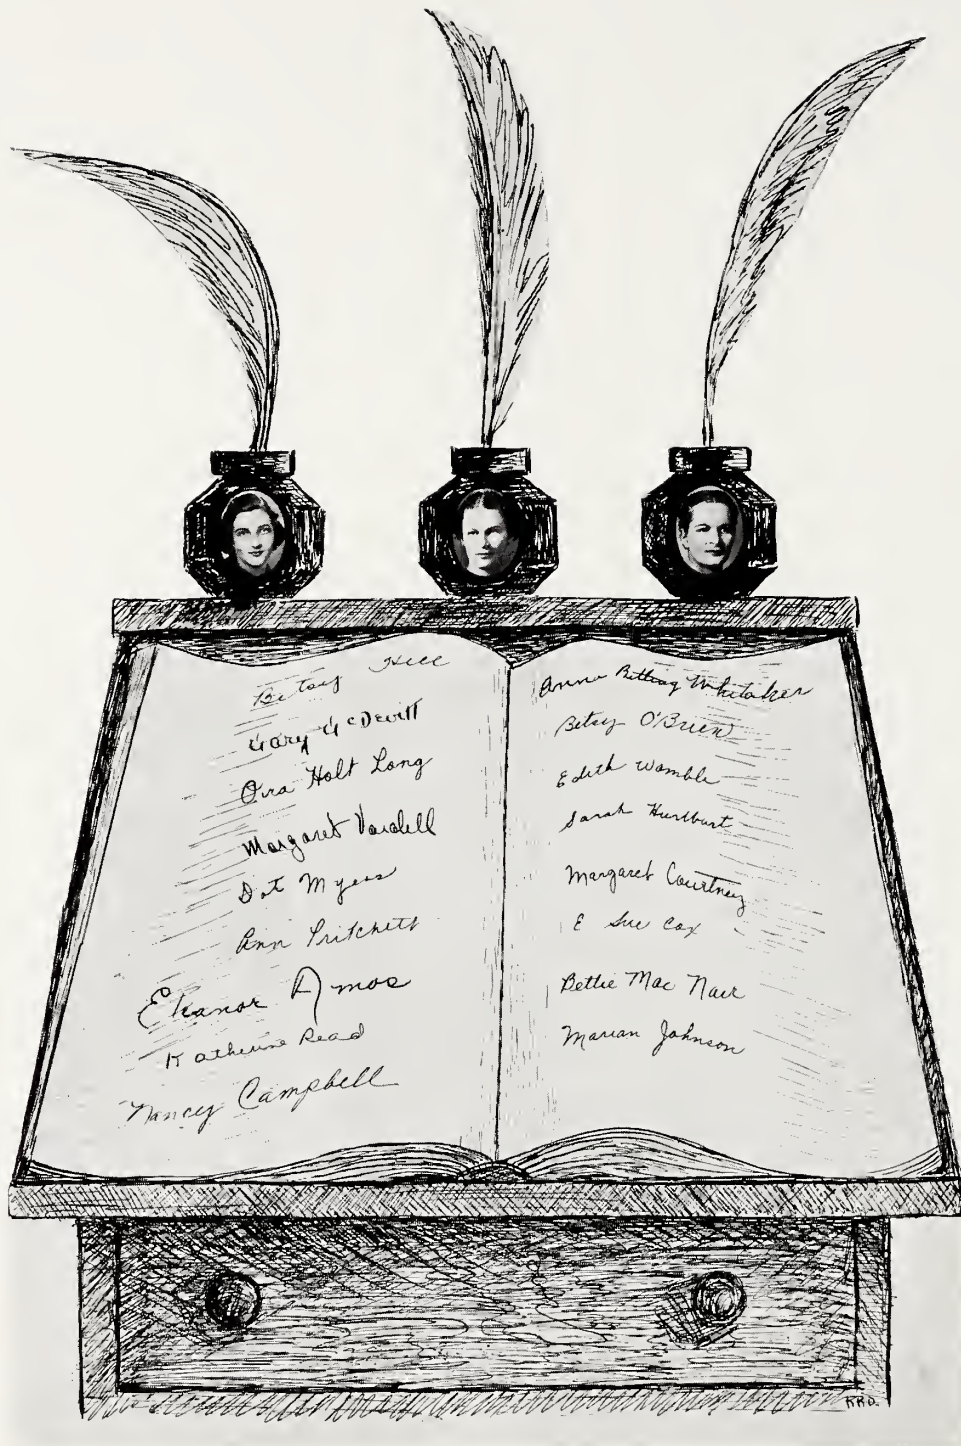 Betsy Hill
McDevitt
Ora Holt Long
Margaret Vardell
Dot Myers
Ann Pritchett
Eleanor Amos
Katherine Read
Nancy Campbell
Anna Bitting Whitaker
Betsy O'Brien
Edith Womble
Sarah Hurlburt
Margaret Courtney
E Sue Cox
Bettie Mac Nair
Marian Johnson
RRD.